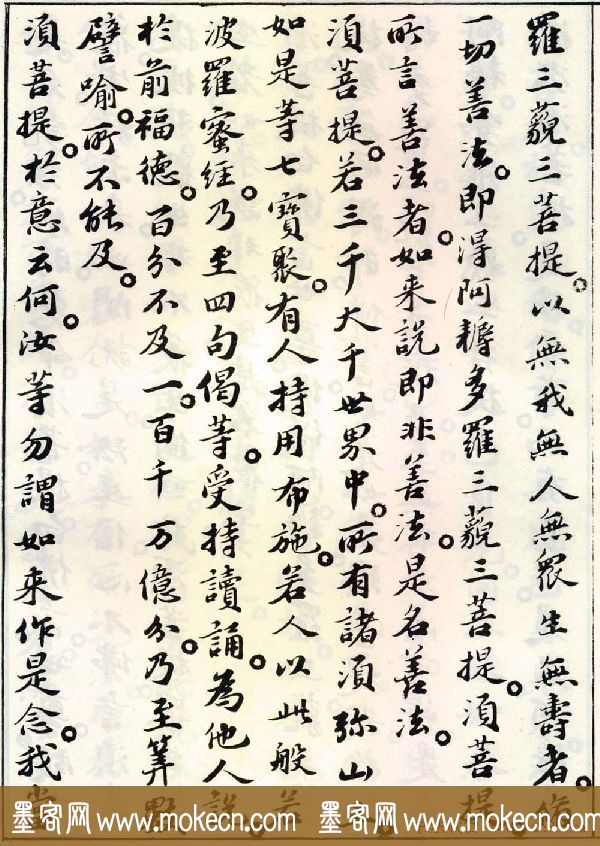 羅三藐三菩提。以無我無人無眾生無壽者。修
一切善法。即得阿耨多羅三藐三菩提。須菩提
所言善法者。如来說即非善法。是名善法。
須菩提。若三千大千世界中。所有諸須弥山
如是等七寶聚。有人持用布施。若人以此般若
波羅蜜經。乃至四句偈等。受持讀誦。為他人說。
於前福德。百分不及一百千万億分。乃至筭數
譬喻。所不能及。
須菩提。於意云何。汝等勿謂如来作是念。我當
墨客网 www.mokecn.com 墨客网 www.mokecn.com